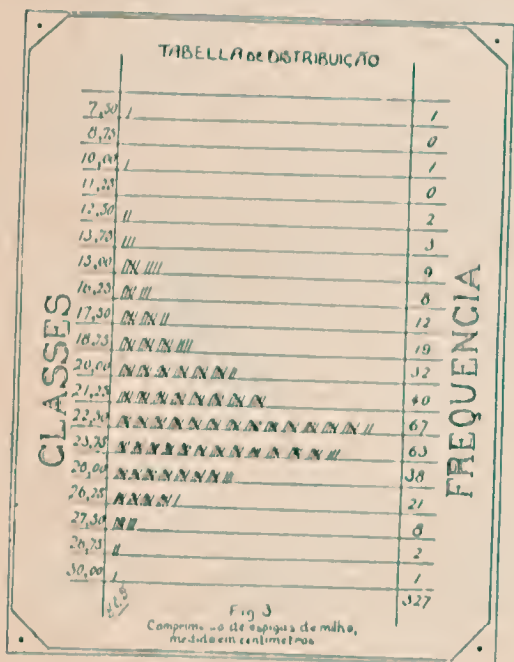 TABELLA DE DISTRIBUIÇÃO
CLASSES
FREQUENCIA
7,50 1
8,75 0
10,00 1
11,25 0
12,50 2
13,75 3
15,00 9
16,25 8
17,50 12
18,75 19
20,00 32
21,25 40
22,50 67
23,75 63
25,00 38
26,25 21
27,50 8
28,75 2
30,00 1
327
Fig 3
de espigas de milho,
medido em centimetros